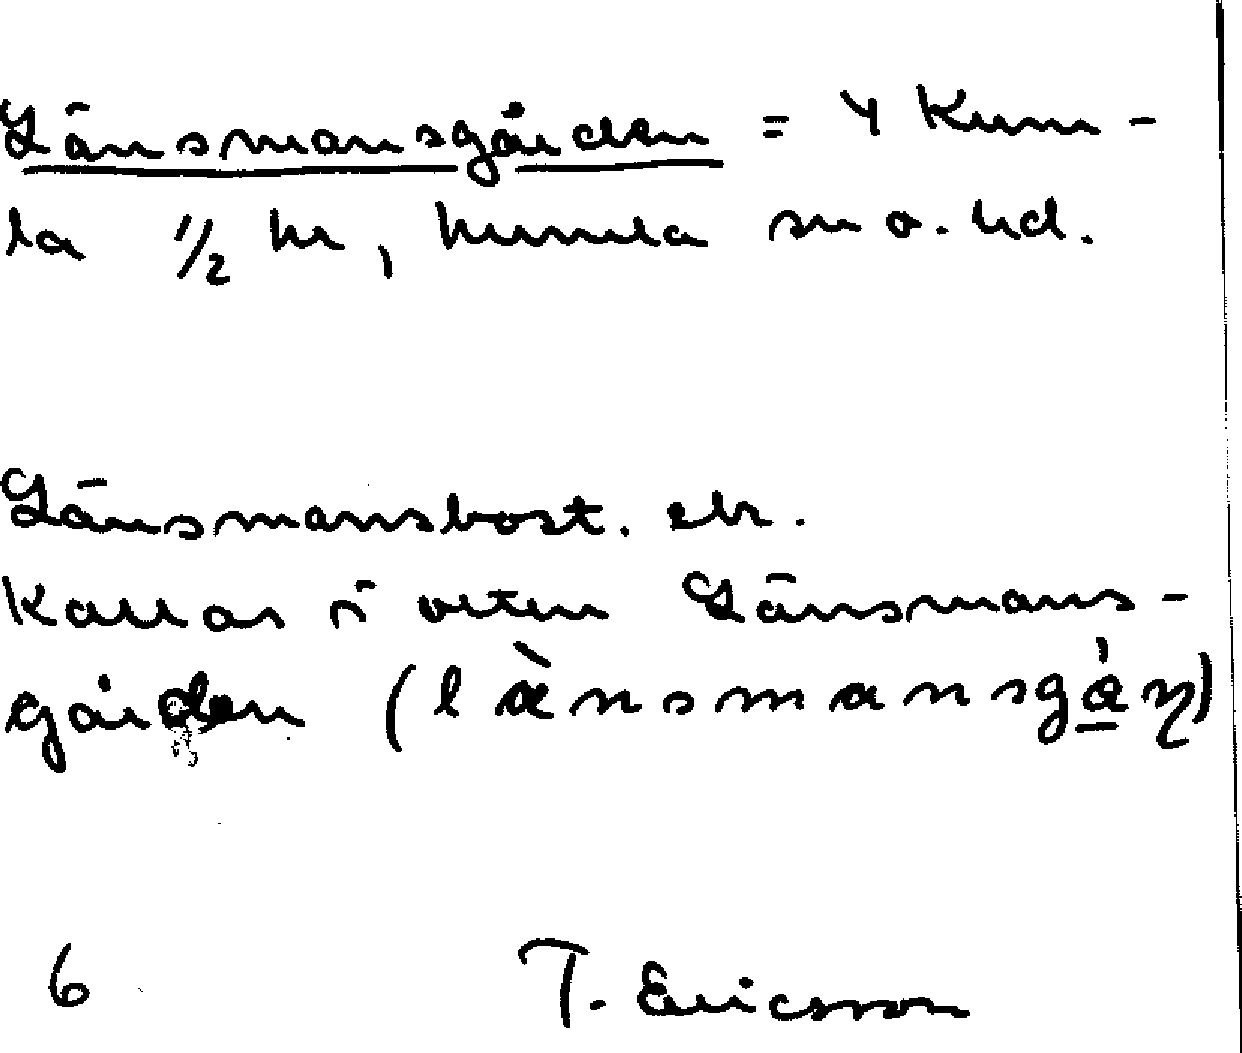 Länsmansgården = 4 Kum-
la 1/2 hr, Kumla sn o. hd.
Länsmansbost. etc.
Kallas i orten Länsmans-
gården (lὰnsmansgą́ɳ)
6 T. Ericsson